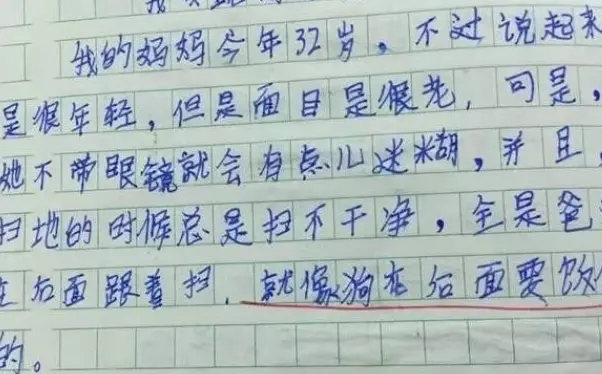 我的妈妈今年32岁，不过说起来
是很年轻，但是面目是很老，可是，
她不带眼镜就会有点儿迷糊，并且，
扫地的时候总是扫不干净，全是爸
在后面跟着扫，就像狗在后面要饮
的。